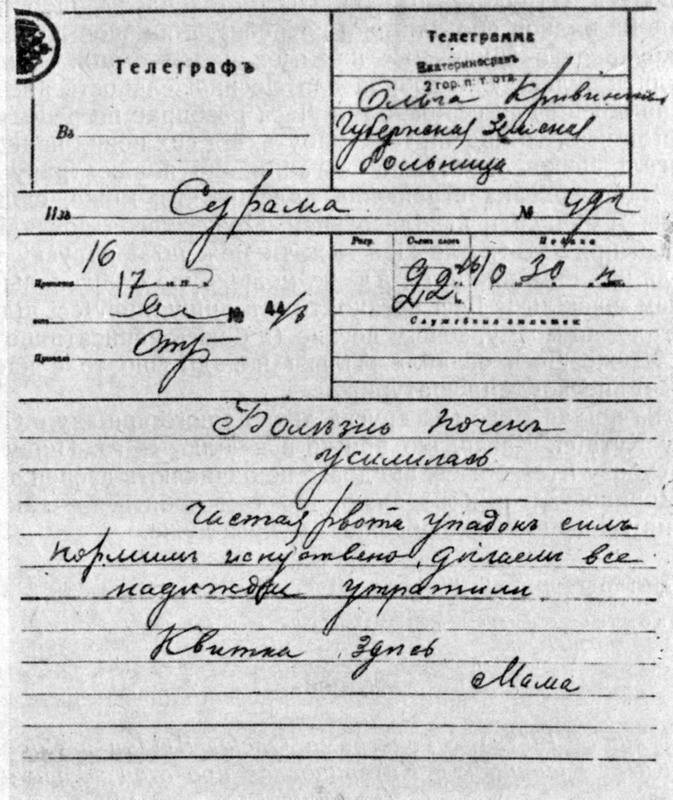 Телеграфъ
Въ
Телеграмма
Екатеринослав
2 гор. п. т. отд.
Ольга Кривинюк
Губернская Земская
больница
Изъ Сурама №
16
Принята 17
№ 44/3
Принялъ
Разр. Счетъ словъ Подана
22 16 10 30 п
Служебныя отмѣтки
Болѣзнь почекъ
усилилась
Частая рвота упадокъ силъ
кормимъ искуствено, дѣлаемъ все
надежды утратили
Квитка здѣсь
Мама